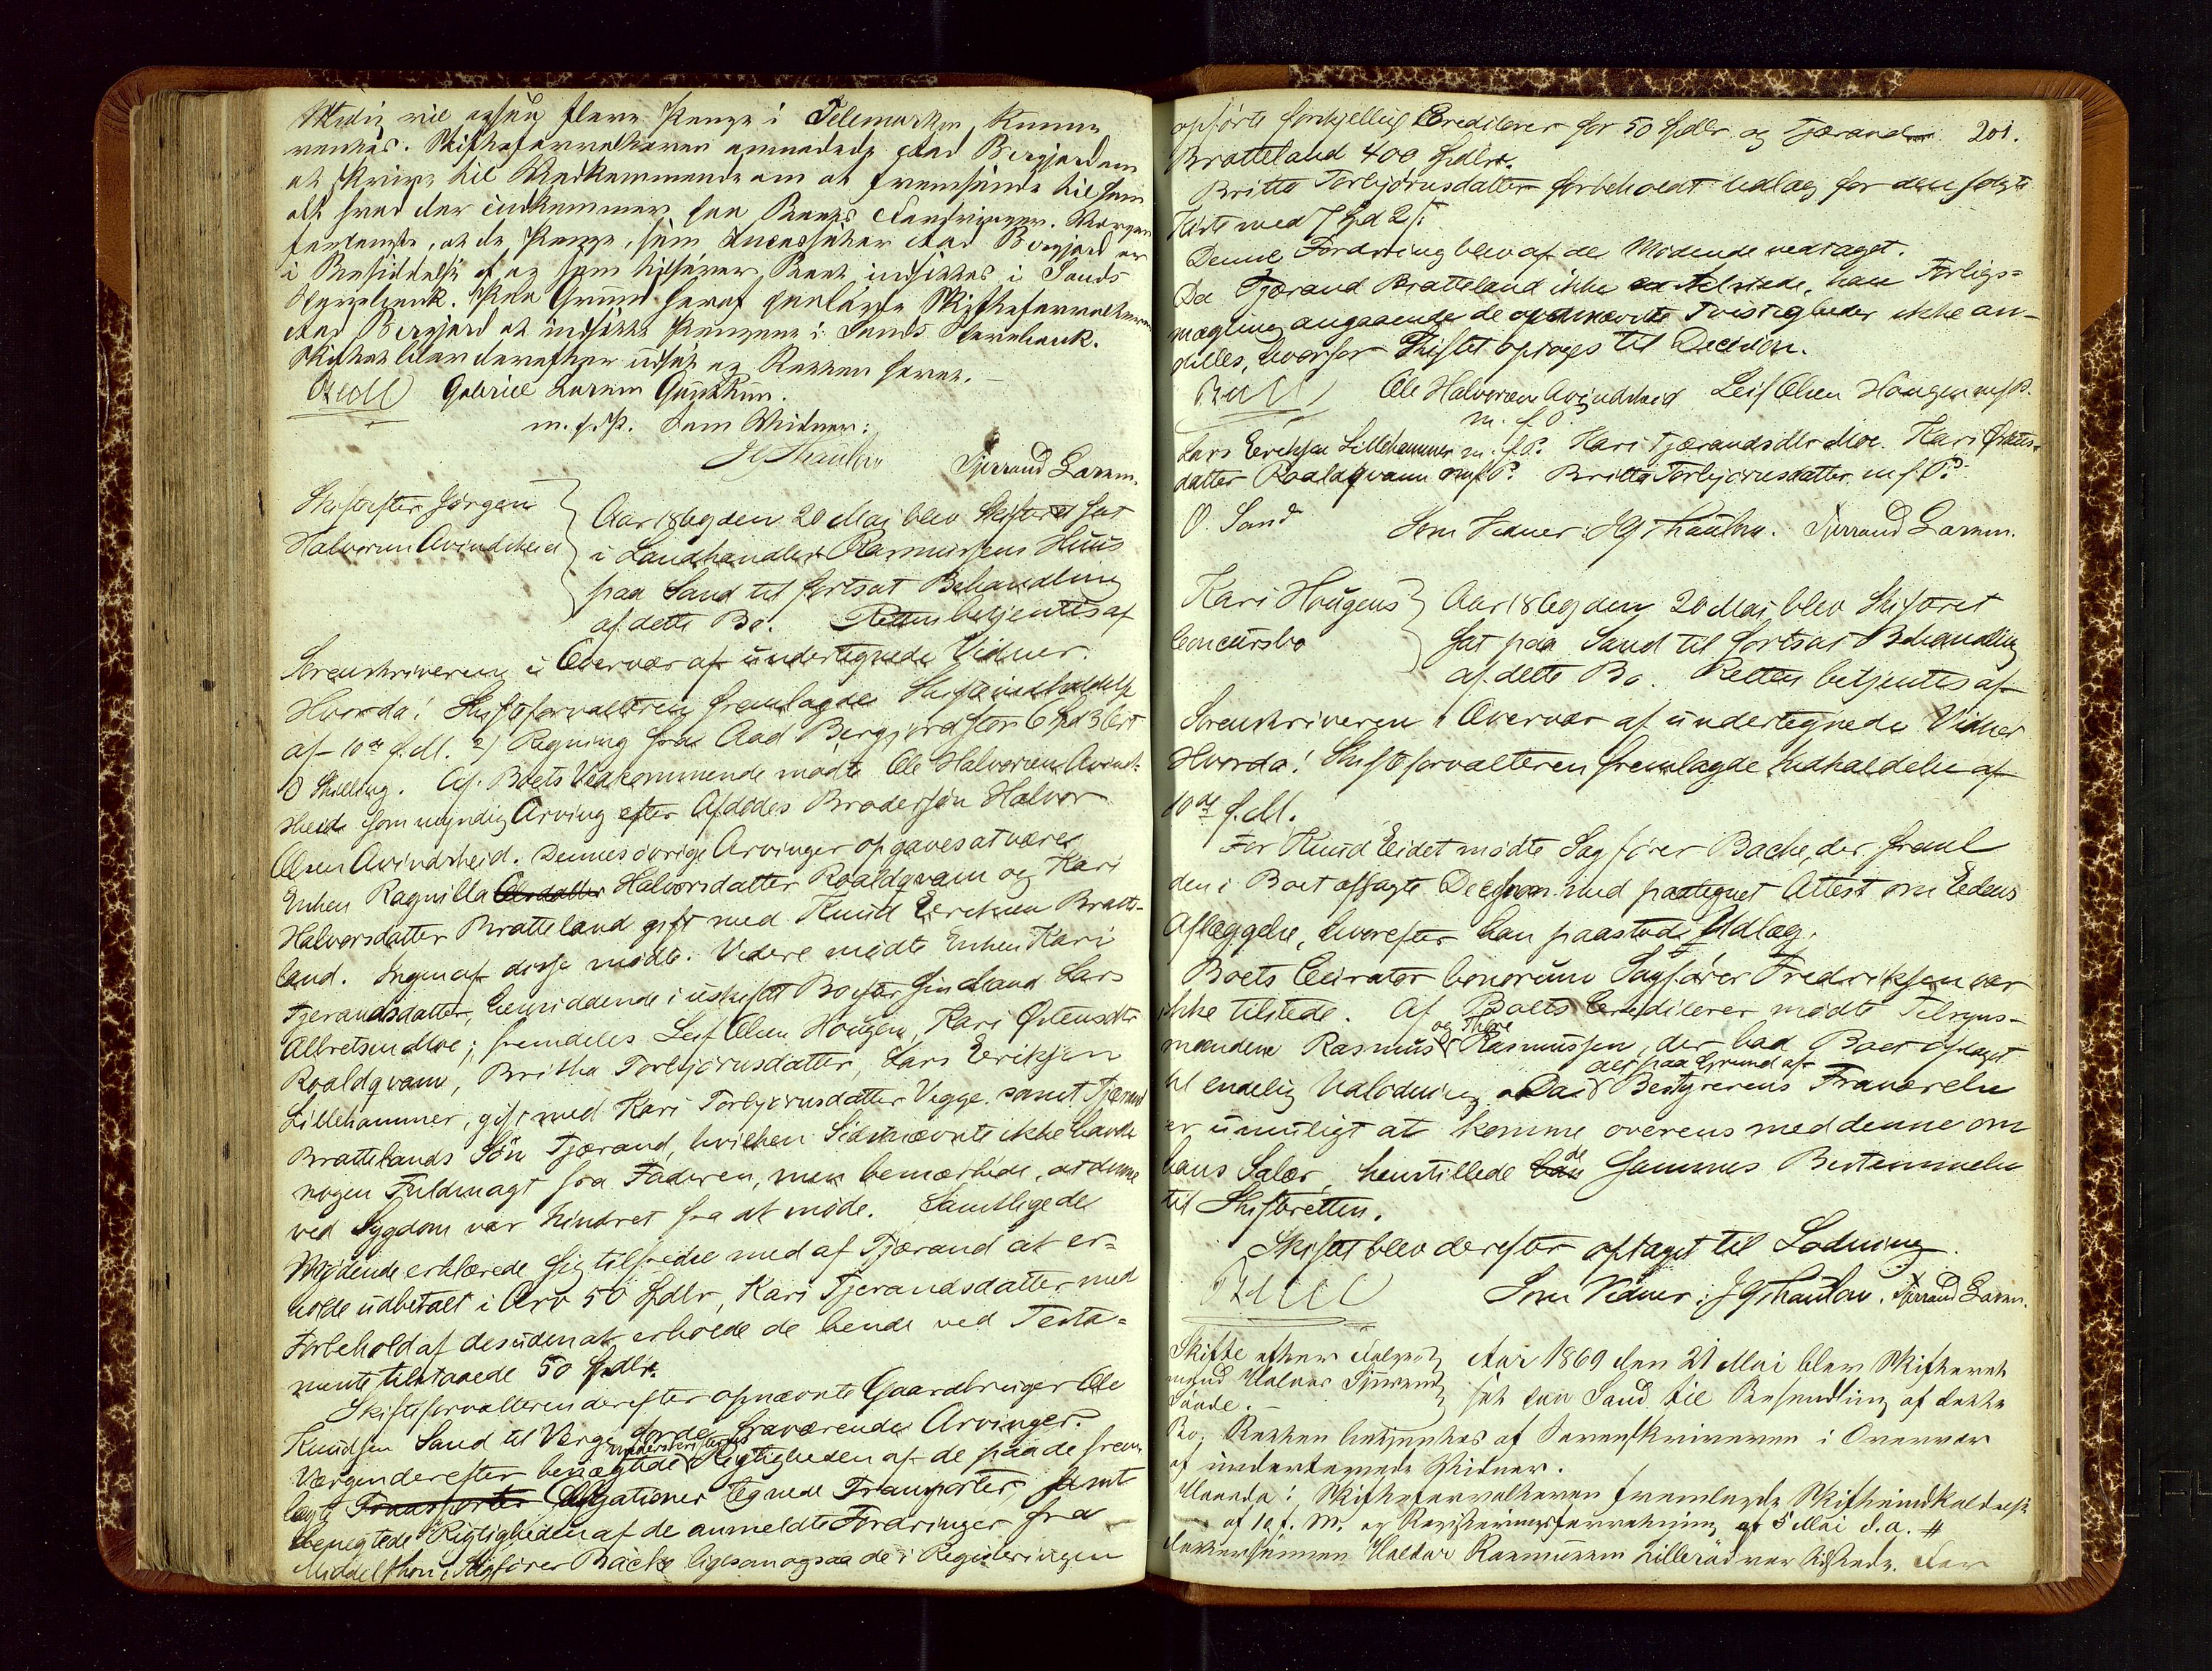 Midio vil ogsaa flere Penge i Telemarken kunne
ventes. Skifteforvalteren anmodede Aad Bergjord om
at skrive til Vedkommende om at fremsende til ham
alt hvad der indkommer paa Boets Fordringer.
forlangte, at de Penge, som Incassator Aad Bergjord er
i Besiddelse af og som tilhører Boet indsættes i Sands
Sparebank. Paa Grund heraf paalagde Skifteforvalteren
Aad Bergjord at indsætte Pengene i Sands Sparebank.
Skiftet blev derefter udsat og Retten hævet.
Gabriel Larsen
m. f. P. Som Vidner:
JGThaulow Tjerrand Larsen.
Skifte efter Jørgen
Halvorsen Avindskeid
Aar 1869 den 20 Mai blev Skifteret sat
i Landhandler Rasmussens Huus
paa Sand til fortsat Behandling
af dette Bo. Retten betjentes af
Sorenskriveren i Overvær af undertegnede Vidner.
Hvorda! Skifteforvalteren fremlagde Skifteindkaldelse
af 10de f. M. 2) Regning fra Aad Bergjord stor 6 Spd 3 Ort
Skilling. Af Boets Vedkommende mødte Ole Halvorsen Avind-
skeid som myndig Arving efter Afdødes Brodersøn Halvor
Olsen Avindskeid. Dennes øvrige Arvinger opgaves at være
Enken Ragnilla Olsdatter Halvorsdatter Roaldqvam og Kari
Halvorsdatter Bratteland gift med Knud Eriksen Bratte-
land. Ingen af disse mødte. Videre mødte Enken Kari
Tjerandsdatter, hensiddende i uskiftet Bo efter sin Mand Lars
Albretsen Moe; fremdeles Leif Olsen Hougen, Kari Østensdtr
Roaldqvam, Britha Torbjørnsdatter, Lars Eriksen
Lillehammer, gift med Kari Torbjørnsdatter Vegge samt Tjærand
Brattelands Søn Tjærand, hvilken Sidstnævnte ikke havde
nogen Fuldmagt fra Faderen, men bemærkede, at denne
ved Sygdom var hindret fra at møde. Samtlige de
Mødende erklærede sig tilfredse med af Tjærand at er-
holde udbetalt i Arv 50 Spdlr, Kari Tjerandsdatter med
Forbehold af desuden at erholde de hende ved Testa-
mente tilstaaede 50 Spdlr.
Skifteforvalteren derefter opnævnte Gaardbruger Ole
Knudsen Sand til Verge for de fraværende Arvinger.
Værgen derefter benægtede Rigtigheden af de paa de frem-
lagte Transporter Obligationer tegnede Transporter samt
benegtede Rigtigheden af de anmeldte Fordringer fra
Middelthon, Sagfører Bache ligesom ogsaa de i Registeringen
opførte forskjellige Creditorer for 50 Spdlr og Tjærand 201.
Bratteland 400 Spdlr.
Britta Torbjørnsdatter forbeholdt Udlæg for den solgte
Kiste med 7 Spd 2 s:
Denne Fordring blev af de Mødende vedtaget.
Da Tjærand Bratteland ikke er tilstede, kan Forligs-
mægling angaaende de opdunævnte Tvistigheder ikke an-
stilles, hvorfor Skiftet optages til Decision.
Ole Halvorsen Avindskeid Leif Olsen Hougen m f P.
m. f. P
Lars Eriksen Lillehammer m. f. P. Kari Tjærandsdtr Moe. Kari Østens-
datter Roaldqvam m f P. Britta Torbjørnsdatter m f P.
O. Sand Som Vidner: JGThaulow. Tjerrand Larsen.
Kari Hougens
Concursbo
Aar 1869 den 20 Mai blev Skifteret
sat paa Sand til fortsat Behandling
af dette Bo. Retten betjentes af
Sorenskriveren i Overvær af undertegnede Vidner
Hvorda! Skifteforvalteren fremlagde Indkaldelse af
10de f. M.
For Knud Eidet mødte Sagfører Bache, der freml
den i Boet afsagte Decision med paategnet Attest om Edens
Aflæggelse, hvorefter han paastod Udlæg.
Boets Curator bonorum Sagfører Fredriksen var
ikke tilstede. Af Boets Creditorer mødte Tilsyns-
mændene Rasmus og Thore Rasmussen, der bad Boet optaget
til endelig Udlodning. Da det paa Grund af Bestyrerens Fraværelse
er umuligt at komme overens med denne om
hans Salær, henstillede de Sammes Bestemmelse
til Skifteretten.
Skiftet blev derefter optaget til Lodning.
Som Vidner: JGThaulow. Tjerrand Larsen.
Skifte efter
mand Halvor
Sande.
Aar 1869 den 21 Mai blev Skifteret
sat paa Sand til Behandling af dette
Bo, Retten betjentes af Sorenskriveren i Overvær
af undertegnede Vidner.
Hvorda: Skifteforvalteren fremlagde Skifteindkaldelse
af 10 f. M. og Registreringsforretning af 5 Mai d. A.
Rasmussen var tilstede. Der